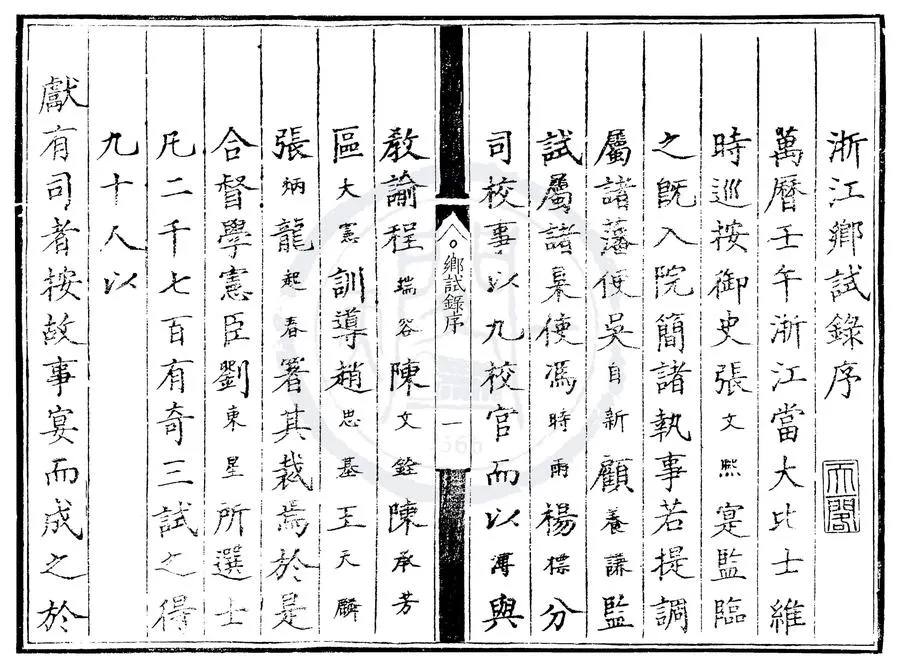 浙江鄉試錄序
天一閣
萬曆壬午浙江當大比士維
時巡按御史張文熙寔監臨
之既入院簡諸執事若提調
屬諸藩使吳自新顧養謙監
試屬諸臬使馮時雨楊標分
司校事以九校官而以溥與
鄉試錄序
一
教諭程瑞容陳文銓陳承芳
區大憲訓導趙忠基王天麟
張炳龍起春箸其裁焉於是
合督學憲臣劉東星所選士
凡二千七百有奇三試之得
九十人以
獻有司者按故事宴而成之於